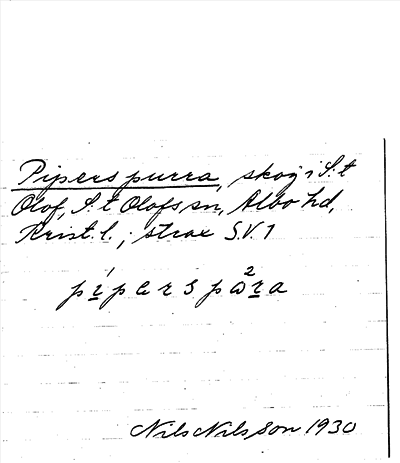 Pipers purra, skog i S:t
Olof, S:t Olofs sn, Albo hd,
Krist. l.; strax S.V. 1
pípersp²ra
Nils Nilsson 1930